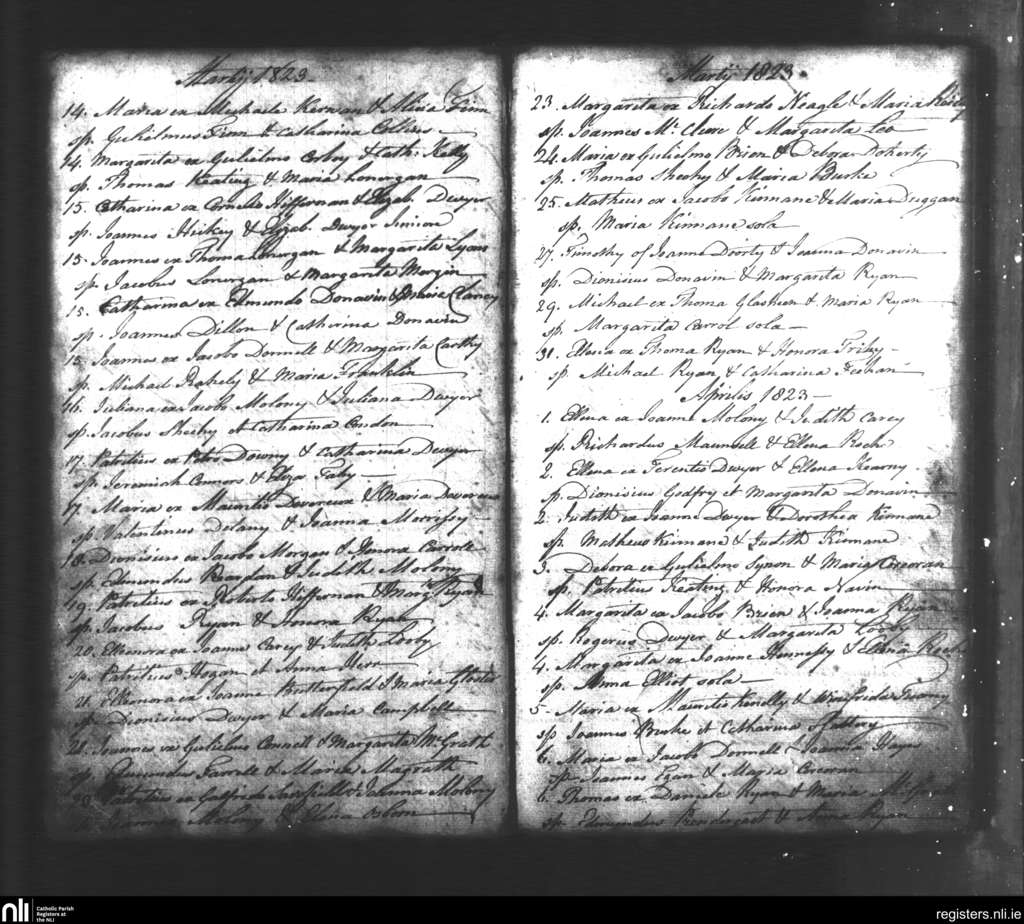 Martij 1823
14. Maria ex Michaele Kerwan & Alicia Finn
sp. Gulielmus Finn & Catharina Collins
14. Margarita ex Gulielmo Corboy & Cath: Kelly
sp. Thomas Keating & Maria Lonergan
15. Catharina ex Cornelio Heffernan & Elizab. Dwyer
sp. Joannes Hickey & Elizab. Dwyer Junior
15. Joannes ex Thoma Lonergan & Margarita Lyons
sp. Jacobus Lonergan & Margarita Morgin
15. Catharina ex Edmundo Donavin & Maria Clancy
sp. Joannes Dillon & Catharina Donavin
15. Joannes ex Jacobo Donnell & Margarita Carthy
sp. Michael & Maria Franklin
16. Juliana ex Jacobo Molony & Juliana Dwyer
sp. Jacobus Sheehy et Catharina Condon
17. Patritius ex Petro Downy & Catharina Dwyer
sp. Jeremiah Connors & Eliza Fahy
17. Maria ex Mauritio Devereux & Maria Devereux
sp. Valentinus Delany & Joanna Morrissy
18. Dionisius ex Jacobo Morgan & Honora Carroll
sp. Edmundus Reardan & Judith Molony
19. Patritius ex Roberto Heffernan & Marg. Ryan
sp. Jacobus Ryan & Honora Ryan
20. Elleonora ex Joanne Carey & Judith Looby
sp. Patritius Hogan et Anna Herr
21. Elleonora ex Joanne Butterfield & Maria
sp. Dionisius Dwyer & Maria Campbell
21. Joannes ex Gulielmo Connell & Margarita McGrath
sp. Edmundus Farrell & Maria Magrath
Patritius ex Galfrido & Joanna Molony
Joannes Molony & Elena Osborn
Martij 1823
23. Margarita ex Richardo Neagle & Maria
sp. Joannes Mc Clure & Margarita Leo
24. Maria ex Gulielmo Brien & Debora Doherty
sp. Thomas Sheehy & Maria Burke
25. Matheus ex Jacobo Kinnane & Maria Duggan
sp. Maria Kinnane sola
27. Timothy of Joanne Doorty & Joanna Donavin
sp. Dionisius Donavin & Margarita Ryan
29. Michael ex Thoma Glasheen & Maria Ryan
sp. Margarita Carrol sola
31. Ellena ex Thoma Ryan & Honora Trihy
sp. Michael Ryan & Catharina Feehan
Aprilis 1823
1. Ellena ex Joanne Molony & Judith Carey
sp. Richardus Maunsell & Ellena Roch
2. Ellena ex Terentio Dwyer & Ellena Kearny
sp. Dionisius Godfry et Margarita Donavin
2. Judith ex Joanne Dwyer & Dorothea Kinnane
sp. Matheus Kinnane & Judith Kinnane
3. Debora ex Gulielmo Synon & Maria Corcoran
sp. Patritius Keating & Honora Navin
4. Margarita ex Jacobo Brien & Joanna Ryan
sp. Rogerus Dwyer & Margarita
4. Margarita ex Joanne Hennessy & Roch
sp. Anna Elliot sola
5. Maria ex Mauritio Kendly & Winifrida
sp Joannes Burke et Catharina Slattery
6. Maria ex Jacobo Donnell & Joanna Hayes
sp. Joannes Egan & Maria Corcoran
6. Thomas ex Daniele Ryan & Maria
sp. Edmundus Prendergast & Anna Ryan
nli
Catholic Parish
Registers at
the NLI
registers.nli.ie